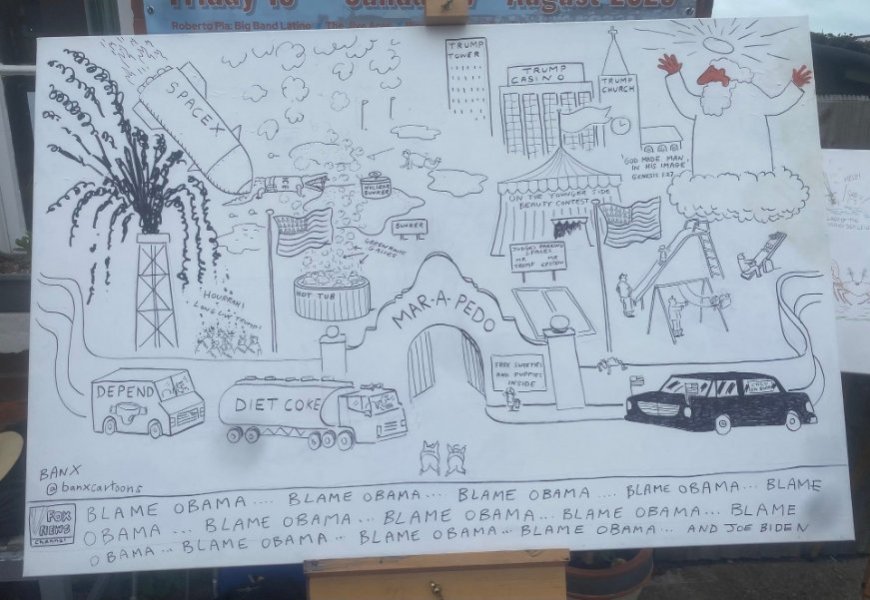 Friday 15 Sunday 17 August 2025
Roberto Pla: Big Band Latino
TRUMP
TOWER
TRUMP
CASINO
TRUMP
CHURCH
SPACEX
'GOD MADE MAN
IN HIS IMAGE'
GENESIS 1:27
ON THE YOUNGER SIDE
BEAUTY CONTEST
BUNKER
BUNKER
JUDGES PARKING
SPACES
MR MR
TRUMP EPSTEIN
HOT TUB
HOURRAH!
LONG LIVE TRUMP!
MAR-A-PEDO
FREE SWEETIES
AND PUPPIES
INSIDE
DEPEND
DIET COKE
BANX
@banxcartoons
FOX
NEWS
channel
BLAME OBAMA .... BLAME OBAMA... BLAME OBAMA .... BLAME OBAMA... BLAME
OBAMA ... BLAME OBAMA... BLAME OBAMA... BLAME OBAMA... BLAME
OBAMA... BLAME OBAMA... BLAME OBAMA... BLAME OBAMA... AND JOE BIDEN